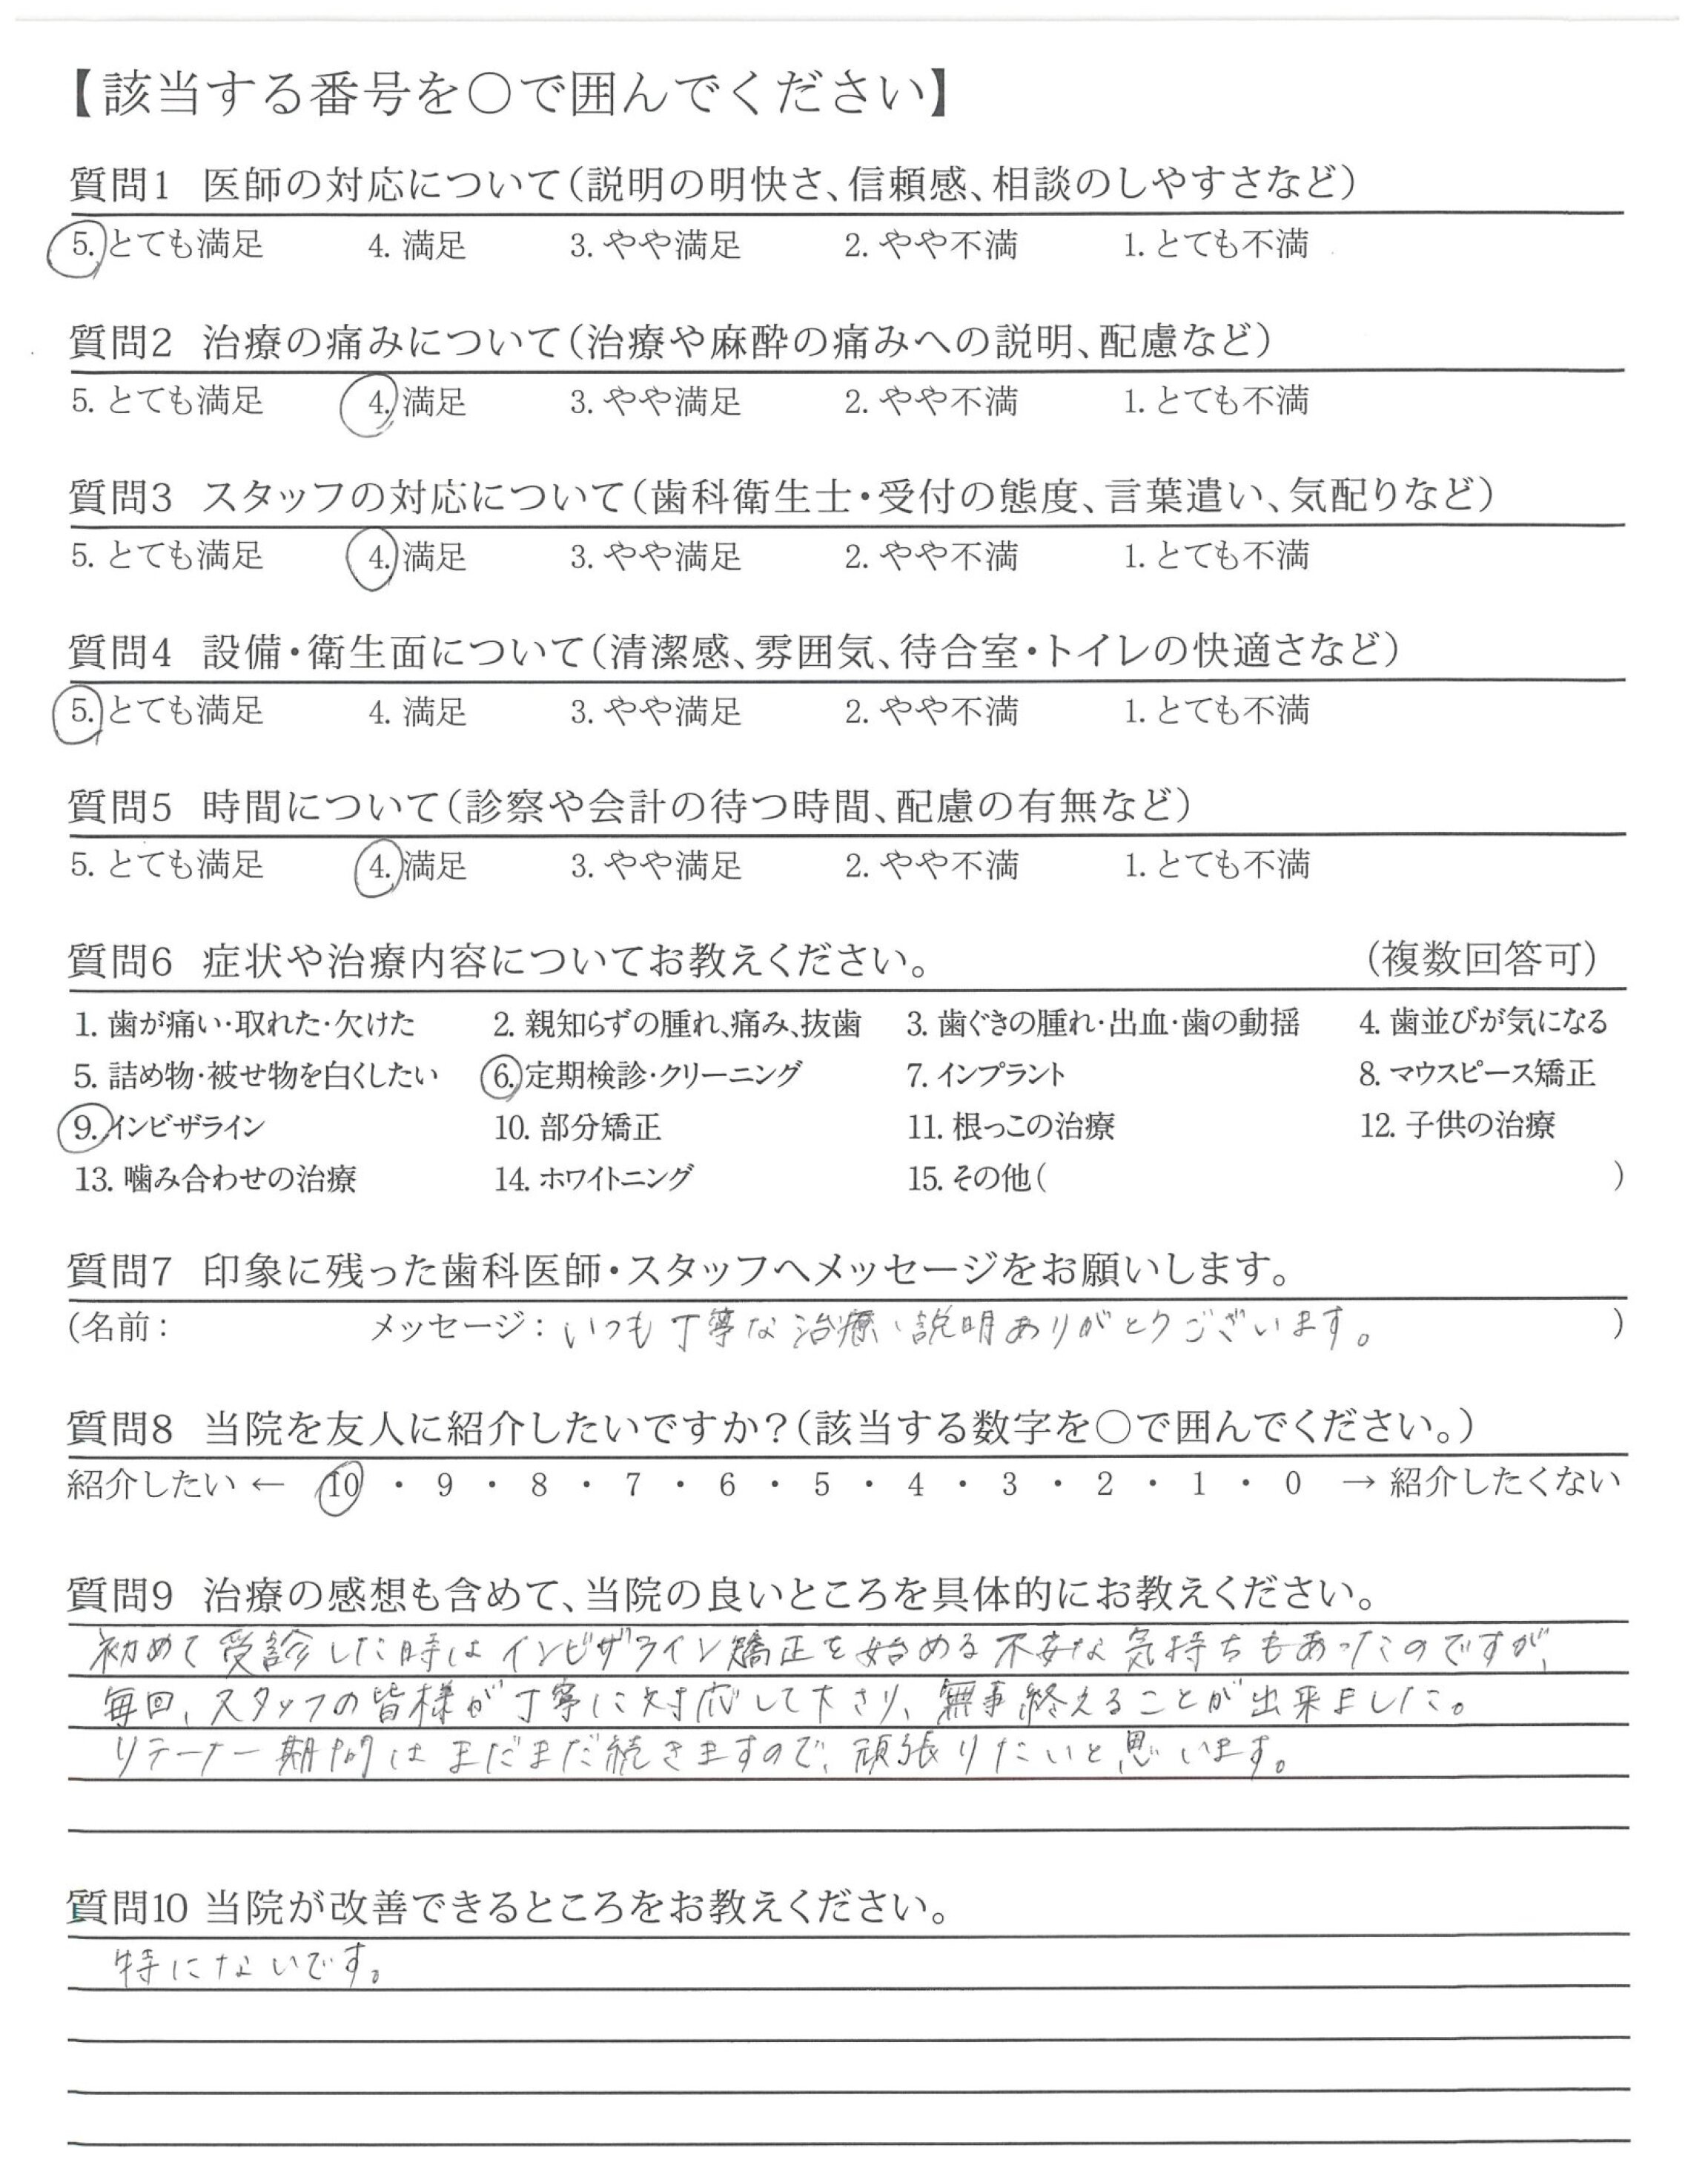 【該当する番号を○で囲んでください】
質問1 医師の対応について(説明の明快さ、信頼感、相談のしやすさなど)
5. とても満足 4. 満足 3. やや満足 2. やや不満 1. とても不満
質問2 治療の痛みについて(治療や麻酔の痛みへの説明、配慮など)
5. とても満足 4. 満足 3. やや満足 2. やや不満 1. とても不満
質問3 スタッフの対応について(歯科衛生士・受付の態度、言葉遣い、気配りなど)
5. とても満足 4. 満足 3. やや満足 2. やや不満 1. とても不満
質問4 設備・衛生面について(清潔感、雰囲気、待合室・トイレの快適さなど)
5. とても満足 4. 満足 3. やや満足 2. やや不満 1. とても不満
質問5 時間について(診察や会計の待つ時間、配慮の有無など)
5. とても満足 4. 満足 3. やや満足 2. やや不満 1. とても不満
質問6 症状や治療内容についてお教えください。 (複数回答可)
1. 歯が痛い・取れた・欠けた 2. 親知らずの腫れ、痛み、抜歯 3. 歯ぐきの腫れ・出血・歯の動揺 4. 歯並びが気になる
5. 詰め物・被せ物を白くしたい 6. 定期検診・クリーニング 7. インプラント 8. マウスピース矯正
9. インビザライン 10. 部分矯正 11. 根っこの治療 12. 子供の治療
13. 噛み合わせの治療 14. ホワイトニング 15. その他( )
質問7 印象に残った歯科医師・スタッフへメッセージをお願いします。
(名前: メッセージ: いつも丁寧な治療、説明ありがとうございます。 )
質問8 当院を友人に紹介したいですか?(該当する数字を○で囲んでください。)
紹介したい ← 10 ・ 9 ・ 8 ・ 7 ・ 6 ・ 5 ・ 4 ・ 3 ・ 2 ・ 1 ・ 0 → 紹介したくない
質問9 治療の感想も含めて、当院の良いところを具体的にお教えください。
初めて受診した時はインビザライン矯正を始める不安な気持ちもあったのですが、
毎回、スタッフの皆様が丁寧に対応して下さり、無事終えることが出来ました。
リテーナー期間はまだまだ続きますので、頑張りたいと思います。
質問10 当院が改善できるところをお教えください。
特にないです。